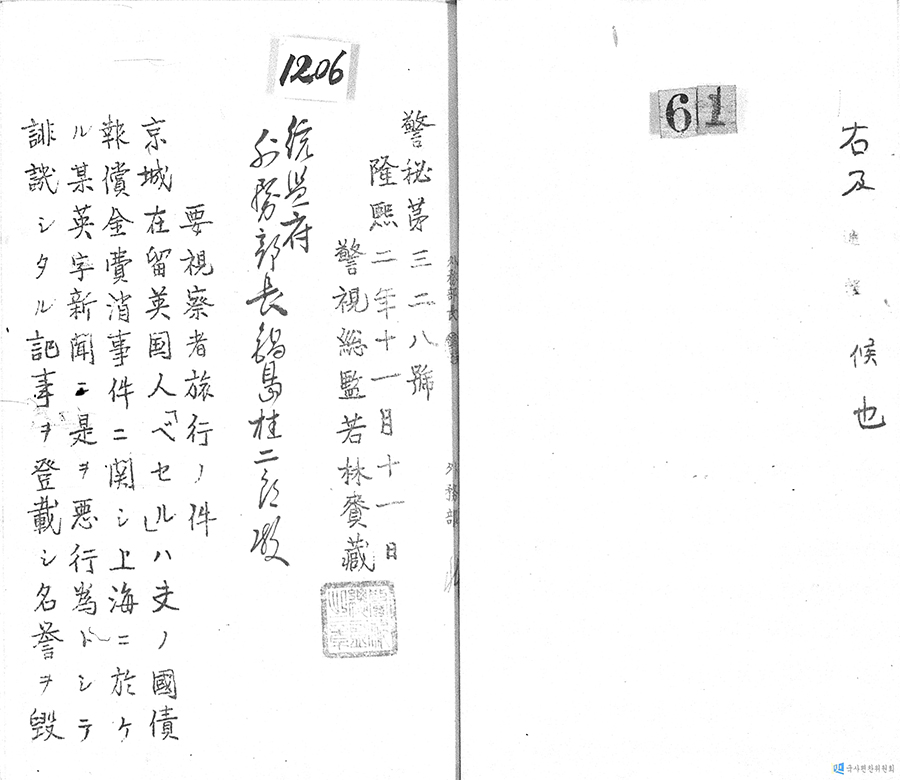 61
右及通報候也
1206
警秘第三二八號
隆熙二年十一月十一日
警視総監若林賚藏
統監府
外務部長鍋島桂二郎殿
要視察者旅行ノ件
京城在留英国人「ベセル」ハ支ノ國債
報償金費消事件ニ関シ上海ニ於ケ
ル某英字新聞ニ是ヲ悪行為トシテ
誹謗シタル記事ヲ登載シ名誉ヲ毀
外務部
국사편찬위원회